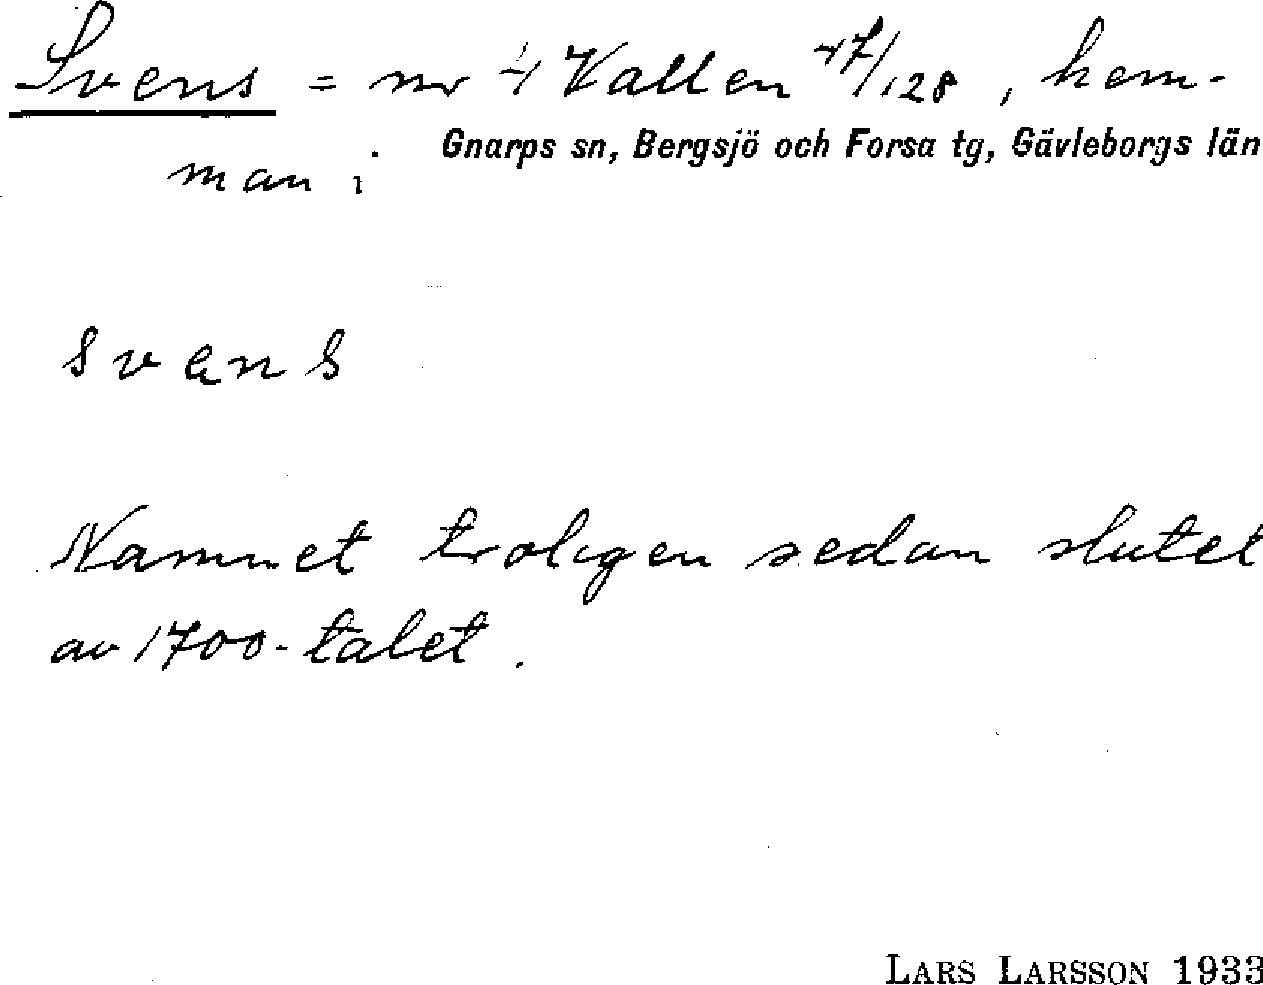 Svens = nr 4 Vallen 47/128, hem-
man.
Gnarps sn, Bergsjö och Forsa tg, Gävleborgs län
svens
Namnet troligen sedan slutet
av 1700-talet.
LARS LARSSON 1933